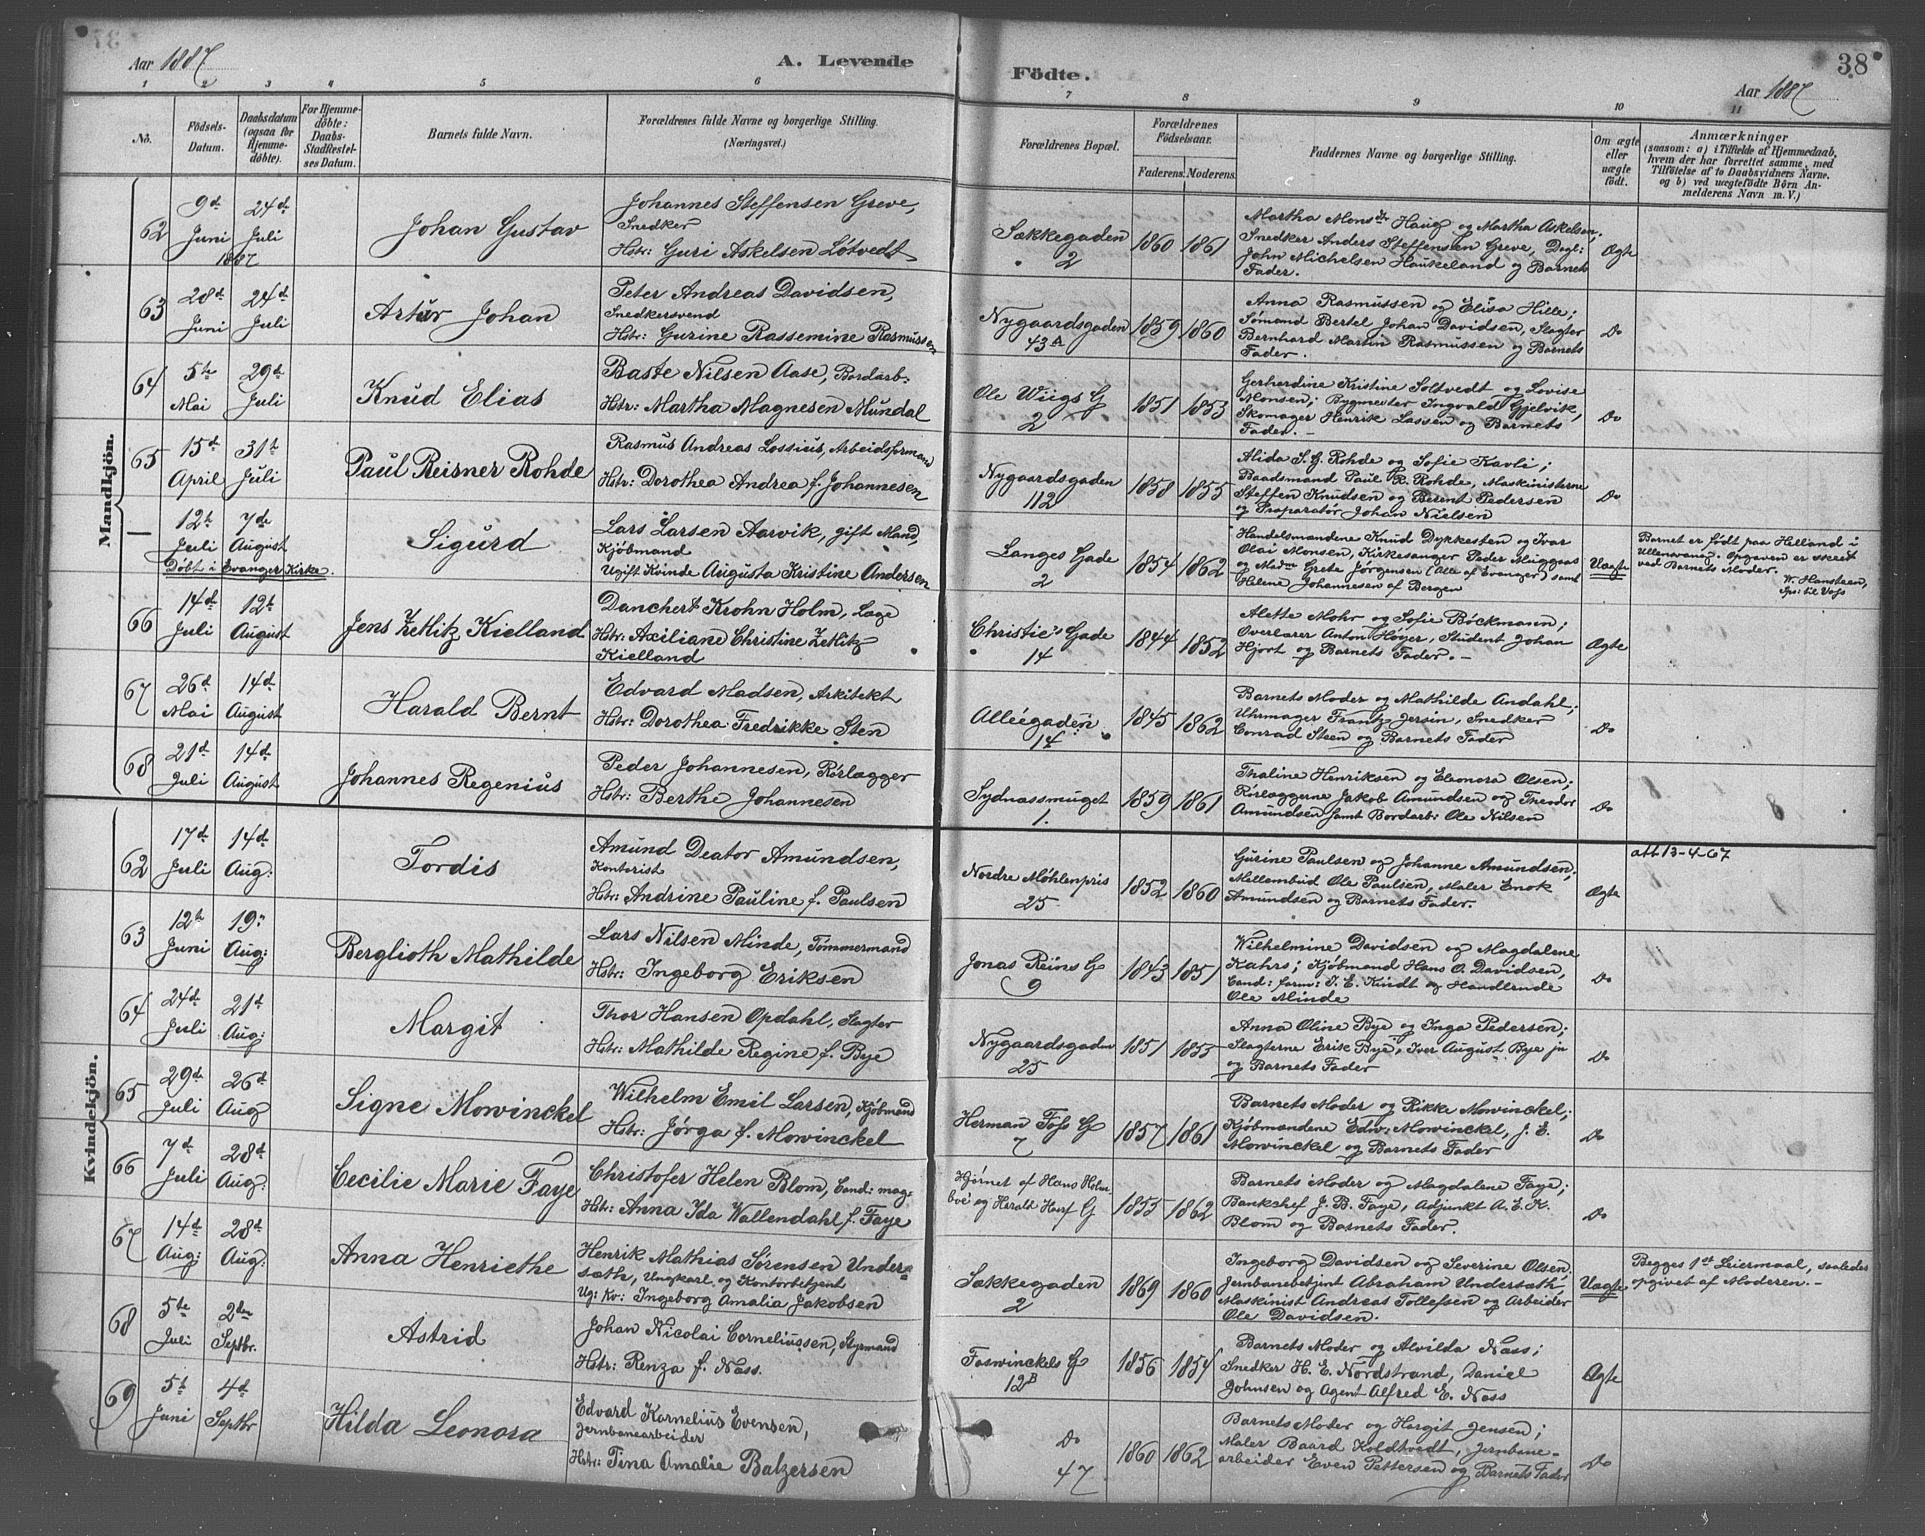 Aar 1887
A. Levende
Födte.
38
Aar 1887
1 2 3 4 5 6 7 8 9 10 11
No.
Födsels-
Datum.
Daabsdatum
(ogsaa for
Hjemme-
döbte).
For Hjemme-
döbte:
Daabs-
Stadfæstel-
ses Datum.
Barnets fulde Navn.
Forældrenes fulde Navne og borgerlige Stilling.
(Næringsvei.)
Forældrenes Bopæl.
Forældrenes
Födselsaar.
Faderens. Moderens.
Faddernes Navne og borgerlige Stilling.
Om ægte
eller
uægte
födt.
Anmærkninger
(saasom: a) i Tilfælde af Hjemmedaab,
hvem der har forrettet samme, med
Tilföielse af to Daabsvidners Navne.
og b) ved uægtefödte Börn An-
melderens Navn m. V.)
Mandkjön.
62
9d
Juni
1887
24d
Juli
Johan Gustav
Johannes Steffensen Greve,
Snedker
Hstr: Guri Askelsen Løtvedt
Sækkegaden
2
1860 1861
Martha Monsdr Haug og Martha Askelsen;
Snedker Anders Steffensen Greve, Dagl:
John Michelsen Haukeland og Barnets
Fader.
Ægte
63
28d
Juni
24d
Juli
Artur Johan
Peter Andreas Davidsen,
Snedkersvend
Hstr: Gurine Rassemine Rasmussen
Nygaardsgaden
43A
1859 1860
Anna Rasmussen og Elisa Hille;
Sømand Bertel Johan Davidsen, Slagter
Bernhard Martin Rasmussen og Barnets
Fader.
Do
64
5te
Mai
29d
Juli
Knud Elias
Baste Nilsen Aase, Bordarb:
Hstr: Martha Magnesen Mundal
Ole Wiigs G
2
1851 1853
Gerhardine Kristine Soltvedt og Lovise
Monsen; Bygmester Ingvald Gjelvik,
Skomager Henrik Lassen og Barnets
Fader. –
Do
65
15d
April
31t
Juli
Paul Reisner Rohde
Rasmus Andreas Lossius, Arbeidsformand
Hstr: Dorothea Andrea f. Johannesen
Nygaardsgaden
112
1858 1855
Alida S. G. Rohde og Sofie Kavli;
Baadsmand Paul R. Rohde, Maskinisterne
Steffen Knudsen og Berent Pedersen
og Præparatør Johan Nielsen
Do
–
12t
Juli
7de
August
Døbt i Evanger Kirke.
Sigurd
Lars Larsen Aarvik, gift Mand,
Kjøbmand
Ugift Kvinde Augusta Kristine Andersen
Langes Gade
2
1854 1862
Handelsmandene Knud Dykkesten og Ivar
Olai Monsen, Kirkesanger Peder Muggaas
og Madm Grete Jørgensen (Alle af Evanger) samt
Helene Johannesen af Bergen
Uægte
Barnet er født paa Helland i
Ullensvang. Opgaven er skeet
ved Barnets Moder.
W. Hansteen,
Spr: til Voss
66
14d
Juli
12t
August
Jens Zetlitz Kielland
Danchert Krohn Holm, Læge
Hstr: Axiliane Christine Zetlitz
Kielland
Christie's Gade
14
1844 1852
Alette Mohr og Sofie Böckmann;
Overlærer Anton Høyer, Student Johan
Hjort og Barnets Fader. –
Ægte
67
26d
Mai
14d
August
Harald Bernt
Edvard Madsen, Arkitekt
Hstr: Dorothea Fredrikke Sten
Alléegaden
14
1845 1862
Barnets Moder og Mathilde Andahl;
Uhrmager Frantz Jersin, Snedker
Conrad Steen og Barnets Fader
Do
68
21d
Juli
14d
August
Johannes Regenius
Peder Johannesen, Rørlægger
Hstr: Berthe Johannesen
Sydnæssmuget
1.
1859 1861
Thaline Henriksen og Eleonora Olsen;
Rørlæggerne Jakob Amundsen og Theodor
Amundsen samt Bordarb: Ole Nilsen
Do
Kvindekjön.
62
17d
Juli
14d
Aug:
Tordis
Amund Deator Amundsen,
Kontorist
Hstr: Andrine Pauline f. Paulsen
Nordre Møhlenpris
25
1852 1860
Gurine Paulsen og Johanne Amundsen;
Mellembud Ole Paulsen, Maler Enok
Amundsen og Barnets Fader.
Ægte
att 13-4-67
63
12te
Juni
19n
Aug:
Berglioth Mathilde
Lars Nilsen Minde, Tømmermand
Hstr: Ingeborg Eriksen
Jonas Reins G
9
1843 1851
Wilhelmine Davidsen og Magdalene
Kahrs; Kjøbmand Hans O. Davidsen,
Cand: farm: J. E. Kindt og Handlende
Ole Minde
Do
64
24d
Juli
21d
Aug:
Margit
Thor Hansen Opdahl, Slagter
Hstr: Mathilde Regine f. Bye
Nygaardsgaden
25
1851 1855
Anna Oline Bye og Inga Pedersen;
Slagterne Erik Bye, Iver August Bye jn
og Barnets Fader
Do
65
29d
Juli
26d
Aug
Signe Mowinckel
Wilhelm Emil Larsen, Kjøbmand
Hstr: Jørga f. Mowinckel
Herman Foss G
7
1857 1861
Barnets Moder og Rikke Mowinckel;
Kjøbmandene Edw: Mowinckel, J. E.
Mowinckel og Barnets Fader
Do
66
7d
Juli
28d
Aug:
Cecilie Marie Faye
Christofer Helen Blom, Cand: mag:
Hstr: Anna Ida Wallendahl f. Faye
Hjørnet af Hans Holm-
boe og Harald Haarf G
1855 1862
Barnets Moder og Magdalene Faye;
Bankchef J. B. Faye, Adjunkt A. E. K.
Blom og Barnets Fader.
Do
67
14d
Aug:
28d
Aug:
Anna Henriethe
Henrik Mathias Sørensen Under-
sæth, Ungkarl og Kontorbetjent
Ug: Kv: Ingeborg Amalia Jakobsen
Sækkegaden
2
1869 1860
Ingeborg Davidsen og Severine Olsen,
Jernbanebetjent Abraham Undersæth,
Maskinist Andreas Tollefsen og Arbeider
Ole Davidsen.
Uægte
Begges 1st Leiermaal, saaledes
opgivet af Moderen. –
68
5te
Juli
2den
Septbr.
Astrid
Johan Nicolai Corneliussen, Styrmand
Hstr: Renza f. Næss.
Foswinckels G
12B
1856 1854
Barnets Moder og Alvilda Næss;
Snedker H. E. Nordstrand, Daniel
Johnsen og Agent Alfred E. Næss
Ægte
69
5t
Juni
4d
Septbr
Hilda Leonora
Edvard Kornelius Evensen,
Jernbanearbeider
Hstr: Tina Amalie Balzersen
Do
47
1860 1862
Barnets Moder og Hargit Jensen;
Maler Baard Koldtvedt, Jernbane-
arbeider Even Pettersen og Barnets Fader
Do